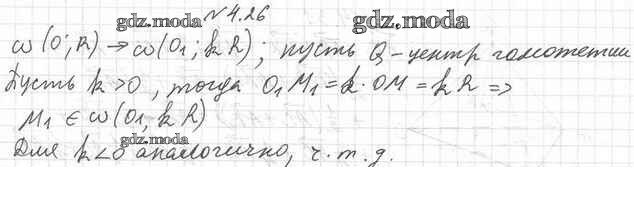 gdz.moda №4.26 gdz.moda
ω(O;R) → ω(O₁;kR); пусть Q-центр гомотетии
Пусть k>0, тогда O₁M₁=k·OM=kR =>
M₁ ∈ ω(O₁,kR)
gdz.moda
Для k<0 аналогично, ч.т.д.